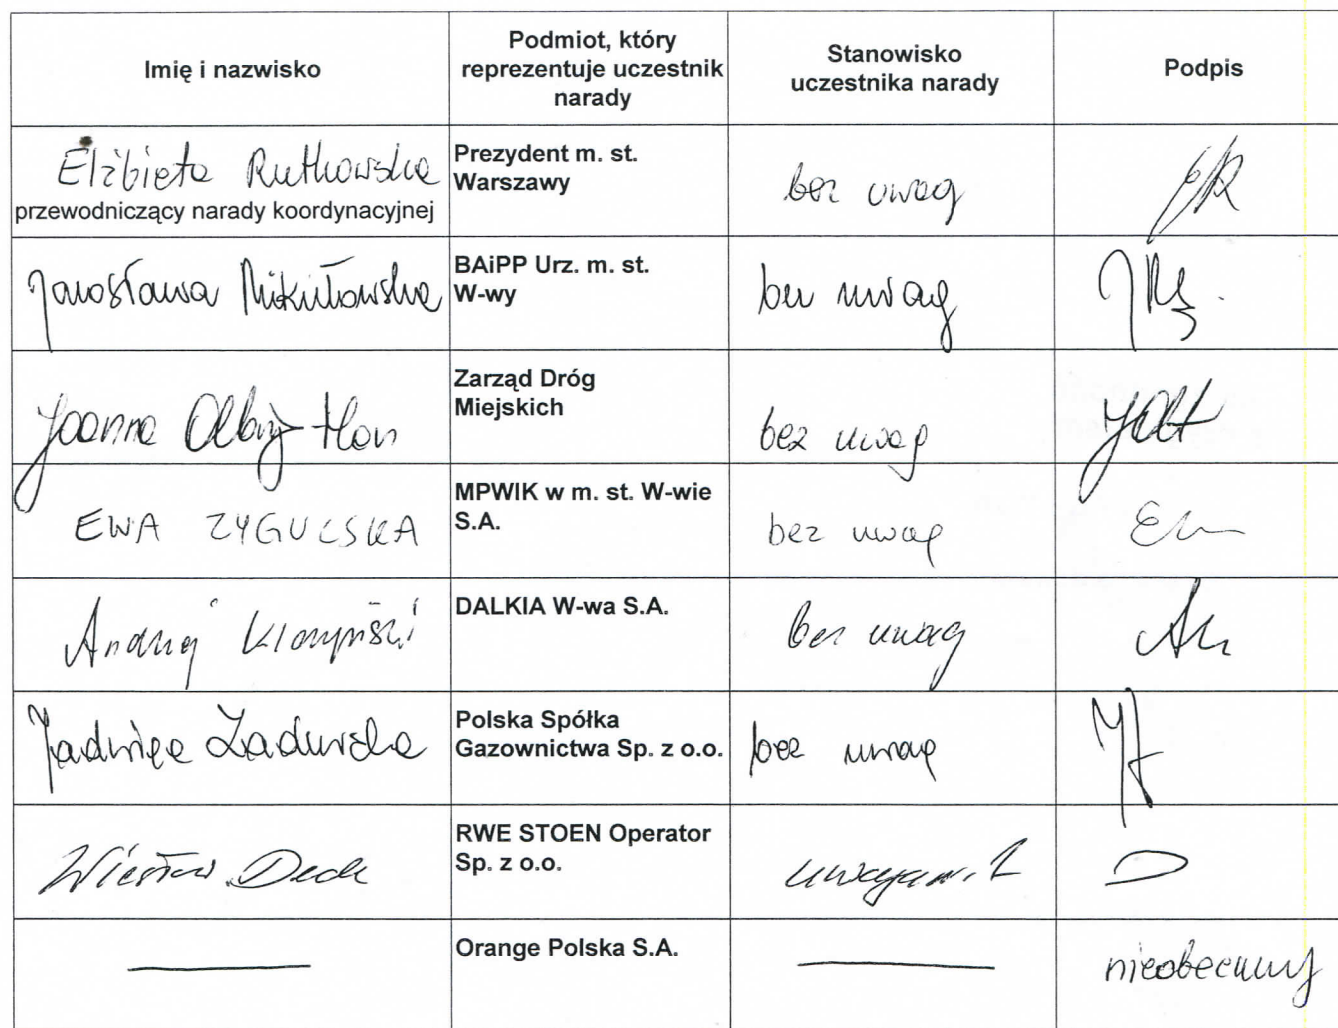 Imię i nazwisko
Podmiot, który
reprezentuje uczestnik
narady
Stanowisko
uczestnika narady
Podpis
Elżbieta Rutkowska
przewodniczący narady koordynacyjnej
Prezydent m. st.
Warszawy
bez uwag
ER
Jarosława Mikułowska
BAiPP Urz. m. st.
W-wy
bez uwag
Joanna
Zarząd Dróg
Miejskich
bez uwag
EWA ZYGULSKA
MPWIK w m. st. W-wie
S.A.
bez uwag
Andrzej
DALKIA W-wa S.A.
bez uwag
Jadwiga Zadurska
Polska Spółka
Gazownictwa Sp. z o.o.
bez uwag
Wiesław Deck
RWE STOEN Operator
Sp. z o.o.
D
Orange Polska S.A.
nieobecny